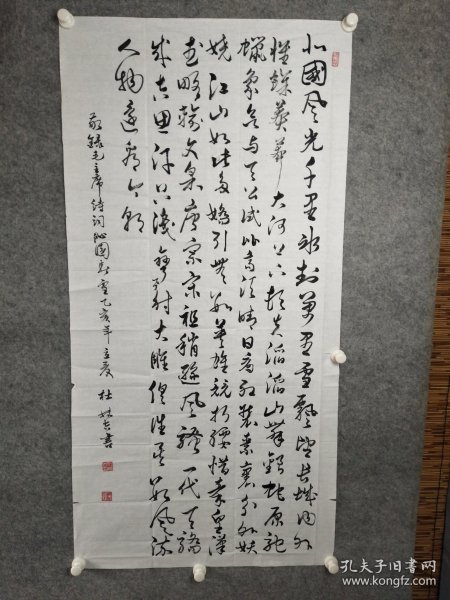 北國风光千里冰封萬里雪飄望长城内外
惟馀莽莽大河上下顿失滔滔山舞銀蛇原驰
蠟象欲与天公试比高须晴日看红装素裹分外妖
娆江山如此多嬌引無数英雄竞折腰惜秦皇漢
武略输文采唐宗宋祖稍遜风骚一代天骄
成吉思汗只识弯弓射大雕俱往矣数风流
人物还看今朝
敬録毛主席诗词沁園春雪乙亥年立夏 杜 书
孔夫子旧书网